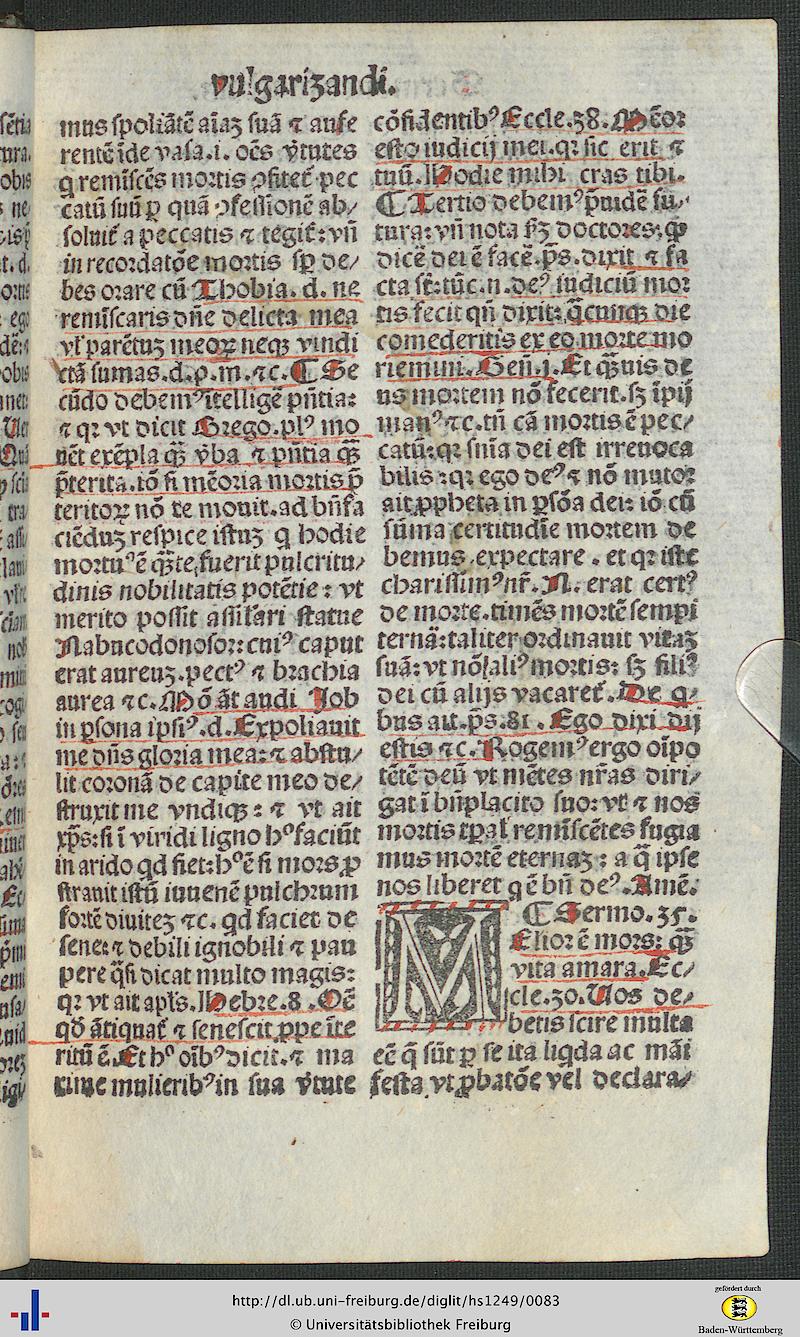 vulgarizandi.
mus spoliātē aīaꝫ suā ⁊ aufe
rentē īde vasa.i. oēs v̄tutes
q remīscēs mortis ꝯfiteť pec
catū suū ꝑ quā ꝯfessionē ab⸗
soluiť a peccatis ⁊ tegiť: vñ
in recordatōe mortis sꝑ de⸗
bes orare cū Thobia. d. ne
remīscaris dñe delicta mea
vľ parētuꝫ meoꝝ neqꝫ vindi
ctā sumas.d.p.m.⁊c. ¶ Se
cūdo debemꝰ ītelligē pñtia:
⁊ qꝛ vt dicit Grego.plꝰ mo
uēt exēpla qꝫ̄ v̄ba ⁊ pñtia qꝫ̄
p̄terita.iō si mēoria mortis p̄
teritoꝝ nō te mouit.ad bñfa
ciēduꝫ respice istuꝫ q hodie
mortuꝰ ē qꝫ̄te fuerit pulcritu⸗
dinis nobilitatis potētie: vt
merito possit assiľari statue
Nabucodonosor: cuiꝰ caput
erat aureuꝫ.pectꝰ ⁊ brachia
aurea ⁊c. Mō āt audi Job
in ꝑsona ipsiꝰ.d. Expoliauit
me dñs gloria mea: ⁊ abstu⸗
lit coronā de capite meo de⸗
struxit me vndiqꝫ: ⁊ vt ait
xp̄s: si ī viridi ligno hͦ faciūt
in arido qd fiet: hͦ ē si mors ꝓ
strauit istū iuuenē pulchrum
fortē diuiteꝫ ⁊c. qd faciet de
sene: ⁊ debili ignobili ⁊ pau
pere q̄si dicat multo magis:
qꝛ vt ait apľs. Hebre.8. Oē
qđ ātiquať ⁊ senescit ꝓpe īte
ritū ē. Et hͦ oībꝰ dicit. ⁊ ma
xime mulieribꝰ in sua v̄tute
cōfidentibꝰ Eccle.38. Mēor
esto iudicij mei.qꝛ sic erit ⁊
tuū. Hodie mihi cras tibi.
¶ Tertio debemꝰ p̄uidē fu⸗
tura: vñ nota sꝫ doctores: ꝙ
dicē dei ē facē. p̄s. dixit ⁊ fa
cta sť: tūc.n. deꝰ iudiciū mor
tis fecit qñ dixit: q̄cunqꝫ die
comederitis ex eo morte mo
riemini. Geñ.j. Et qꝫ̄uis de
us mortem nō fecerit. sꝫ īpij
manꝰ ⁊c.tñ cā mortis ē pec⸗
catū: qꝛ snīa dei est irreuoca
bilis: qꝛ ego deꝰ ⁊ nō mutor
ait ꝓpheta in ꝑsōa dei: iō cū
sūma certitudīe mortem de
bemus expectare . et qꝛ iste
charissimꝰ nr̄. N. erat certꝰ
de morte.timēs mortē sempi
ternā: taliter ordinauit vitaꝫ
suā: vt nō ſaliꝰ mortis: sꝫ filiꝰ
dei cū alijs vocareť. De q⸗
bus ait.ps.81. Ego dixi dij
estis ⁊c. Rogemꝰ ergo oīpo
tētē deū vt mētes nr̄as diri⸗
gat ī bñplacito suo: vľ ⁊ nos
mortis tꝑaľ remīscētes fugia
mus mortē eternaꝫ: a q̄ ipse
nos liberet q ē bñ deꝰ. Amē.
¶ Sermo. 35.
MElior ē mors: qꝫ̄
vita amara. Ec⸗
cle.30. Uos de⸗
betis scire multa
eē q̄ sūt ꝑ se ita liqda ac māi
festa vt ꝓbatōe vel declara⸗
http://dl.ub.uni-freiburg.de/diglit/hs1249/0083
© Universitätsbibliothek Freiburg
gefördert durch
Baden-Württemberg